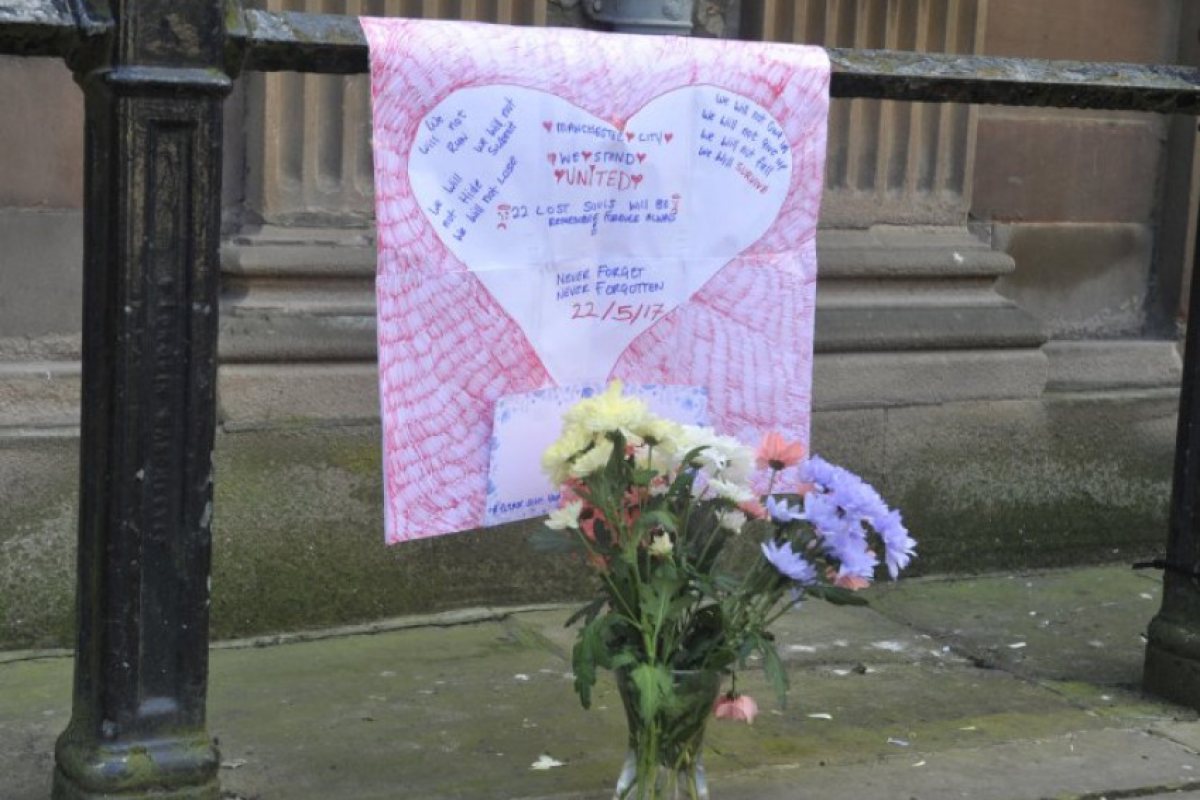 We will not Run
We will not Submit
We will not Hide
We will not Lose
MANCHESTER CITY
WE STAND
UNITED
22 LOST SOULS WILL BE
FOREVER
NEVER FORGET
NEVER FORGOTTEN
22/5/17
We will not
We will not Give up
We will not fall
We will SURVIVE